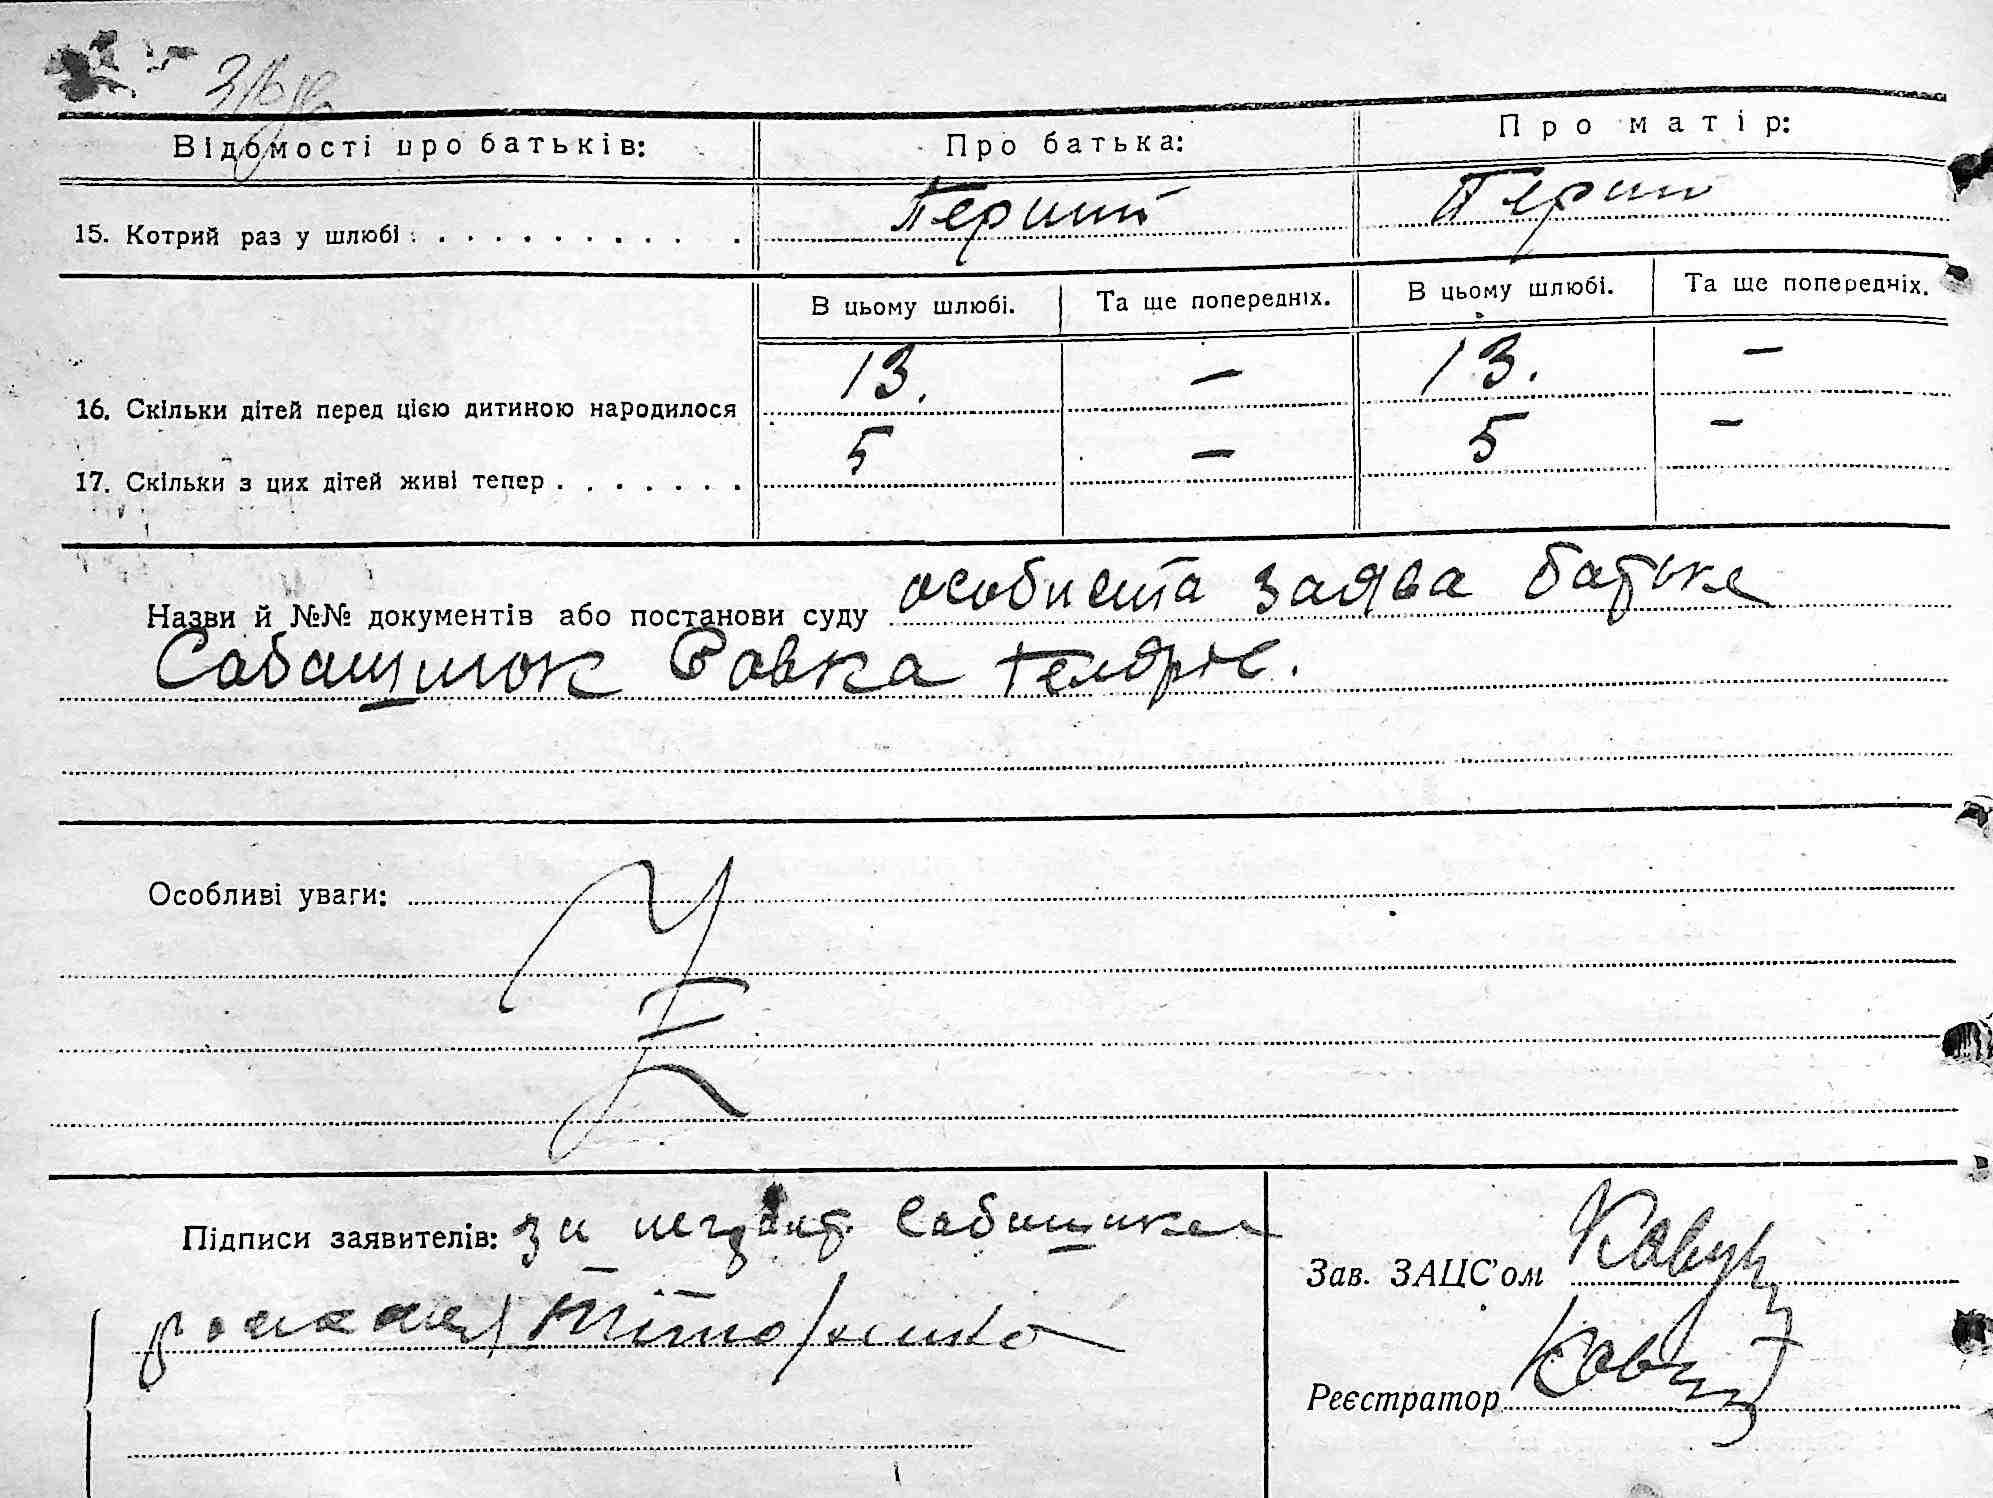 Відомості про батьків:
Про батька:
Про матір:
15. Котрий раз у шлюбі: . . . . . . . . . .
Перший
Перши
В цьому шлюбі.
Та ще попередніх.
В цьому шлюбі.
Та ще попередніх.
16. Скільки дітей перед цією дитиною народилося
13.
–
13.
–
17. Скільки з цих дітей живі тепер . . . . . . .
5
–
5
–
Назви й №№ документів або постанови суду особиста заява батька
Сабащнюк Савка
Особливі уваги:
Підписи заявителів: за
Зав. ЗАЦС'ом Кавун
Реєстратор Кавун